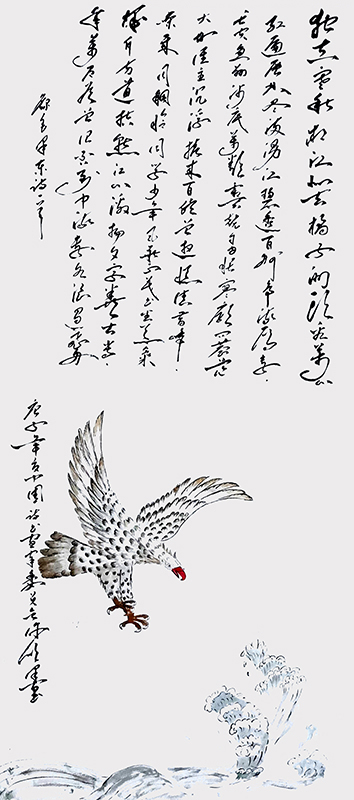 独立寒秋湘江北去橘子洲头看万山
红遍层林尽染漫江碧透百舸争流鹰击
长空鱼翔浅底万类霜天竞自由怅寥廓问苍茫
大地谁主沉浮携来百侣曾游忆往昔峥
月稠恰同学少年风华正茂书生意气
挥斥方遒指点江山激扬文字粪土当
年万户侯曾记否到中流击水浪遏飞舟
毛泽东诗一首
庚子年